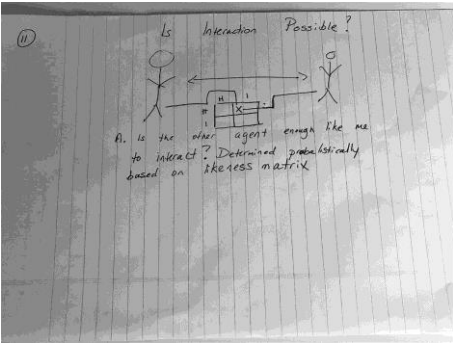 11
Is Interaction Possible?
H 1
H X
1
A. Is the other agent enough like me
to interact? Determined probabilistically
based on likeness matrix